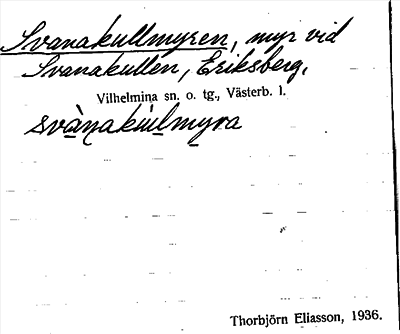 Svanakullmyren, myr vid
Svanakullen, Eriksberg,
Vilhelmina sn. o. tg., Västerb. l.
svànakulmyra
Thorbjörn Eliasson, 1936.